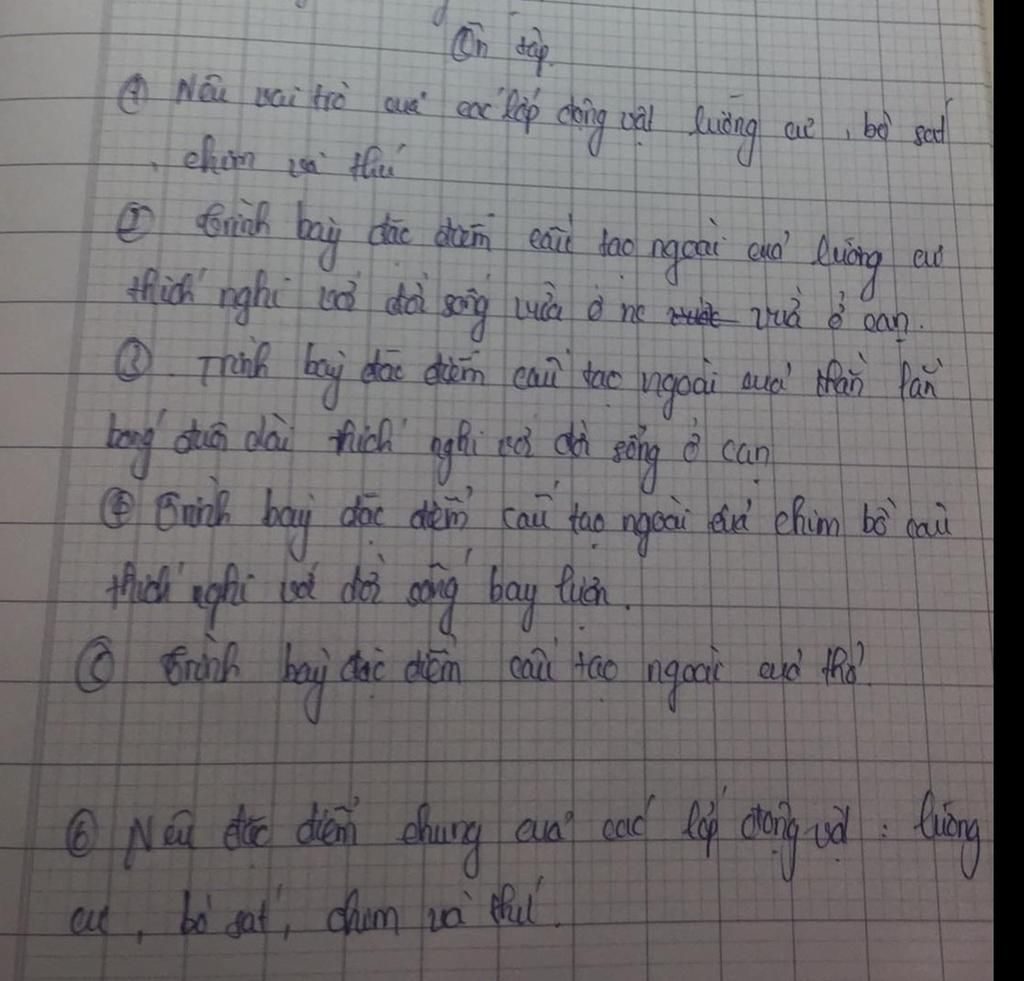 Ôn tập
① Nêu vai trò của các lớp động vật lưỡng cư, bò sát
, chim và thú
② Trình bày đặc điểm cấu tạo ngoài của lưỡng cư
thích nghi với đời sống vừa ở nc vừa ở cạn.
③ Trình bày đặc điểm cấu tạo ngoài của thằn lằn
bóng đuôi dài thích nghi với đời sống ở cạn
④ Trình bày đặc điểm cấu tạo ngoài của chim bồ câu
thích nghi với đời sống bay lượn.
⑤ Trình bày đặc điểm cấu tạo ngoài của thỏ.
⑥ Nêu đặc điểm chung của các lớp động vật : lưỡng
cư, bò sát, chim và thú.